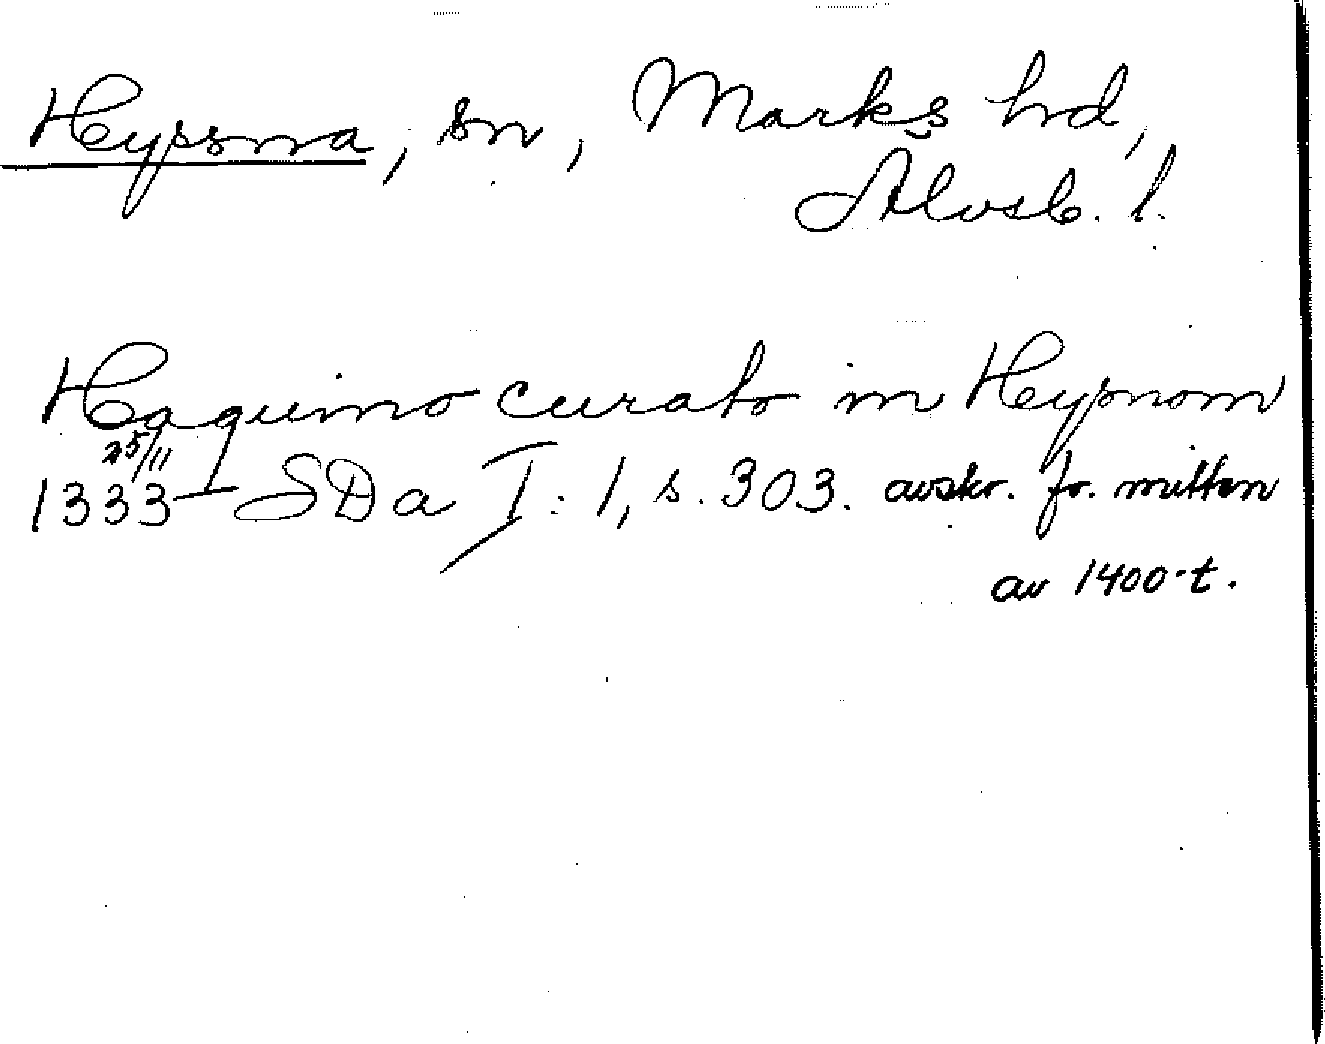 Hyssna, sn, Marks hd,
Älvsb. l.
Haquino curato in Hysnom
25/11
1333 SDa I: 1, s. 303. avskr. fr. mitten
av 1400-t.